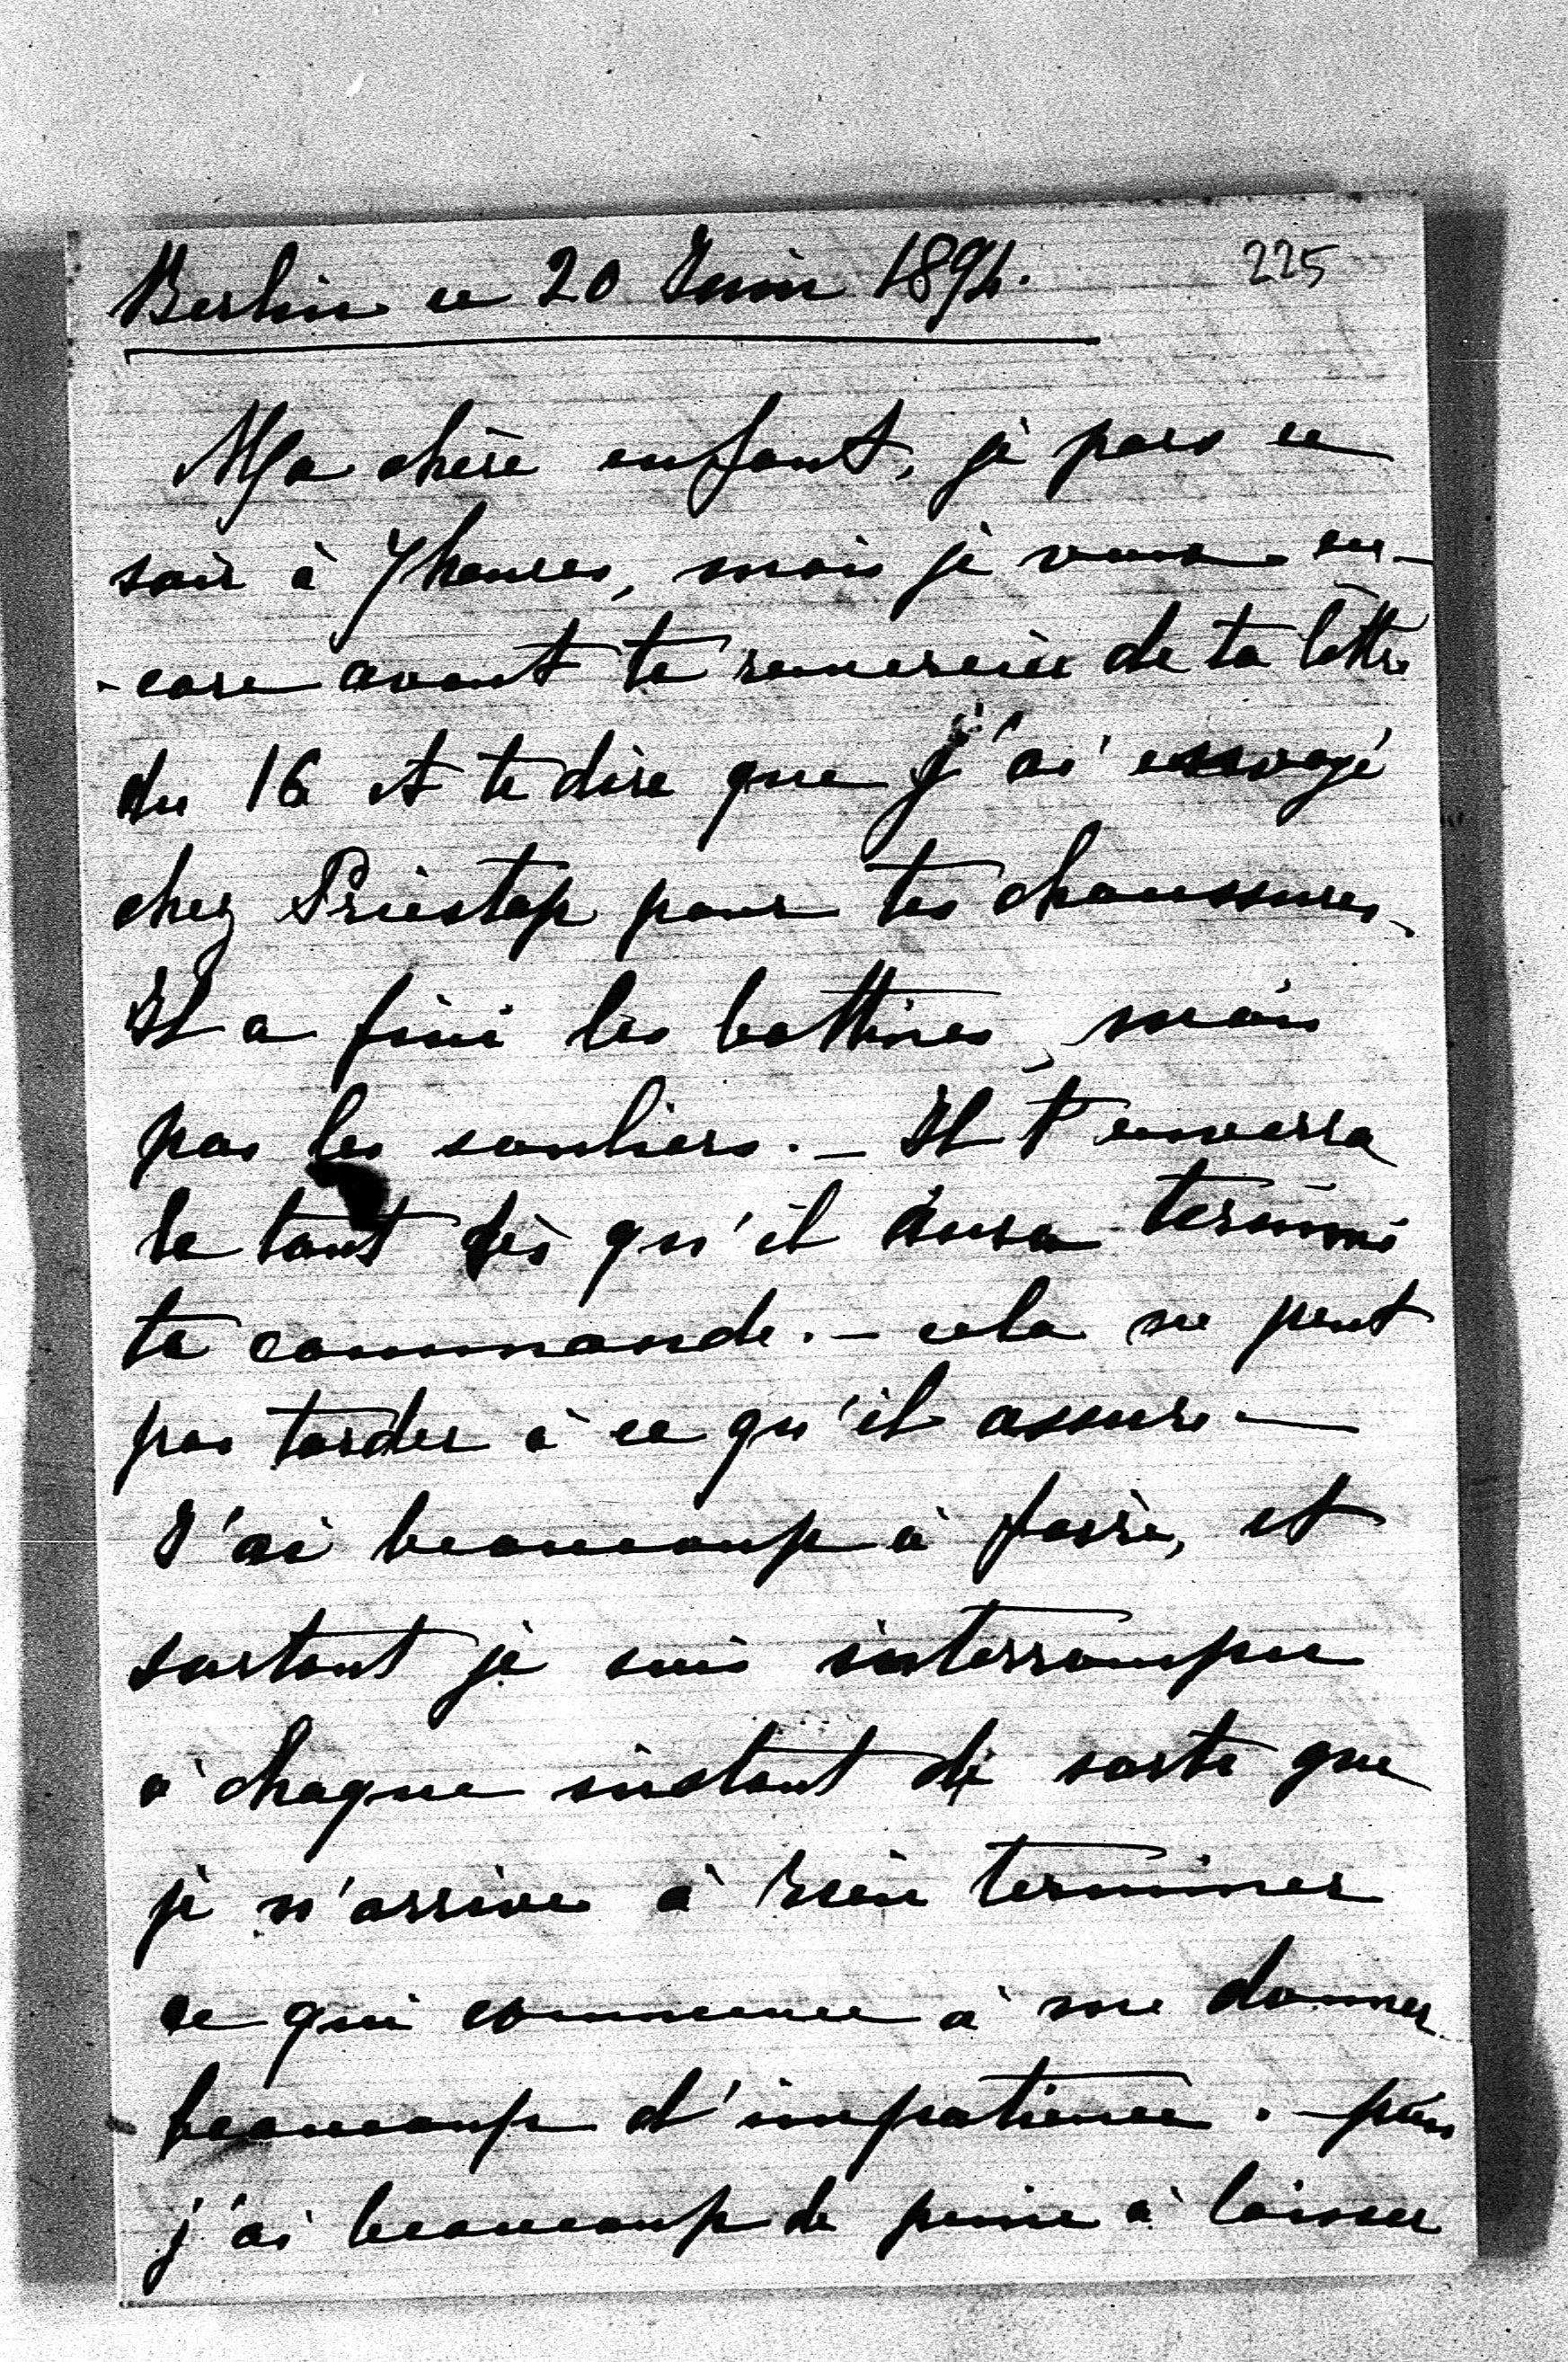 Berlin ce 20 Juin 1894.
225
Ma chère enfant, je pars ce
soir à 7 heures, mais je veux en-
-core avant te remercier de ta lettre
du 16 et te dire que j'ai envoyé
chez Priestop pour tes chaussures.
Il a fini les bottines, mais
pas les souliers. _ Il t'enverra
le tout dès qu'il aura terminé
ta commande. _ cela ne peut
pas tarder à ce qu'il assure _
J'ai beaucoup à faire, et
surtout je suis interrompue
à chaque instant de sorte que
je n'arrive à rien terminer
ce qui commence à me donner
beaucoup d'impatience. _ puis
j'ai beaucoup de peine à laisser